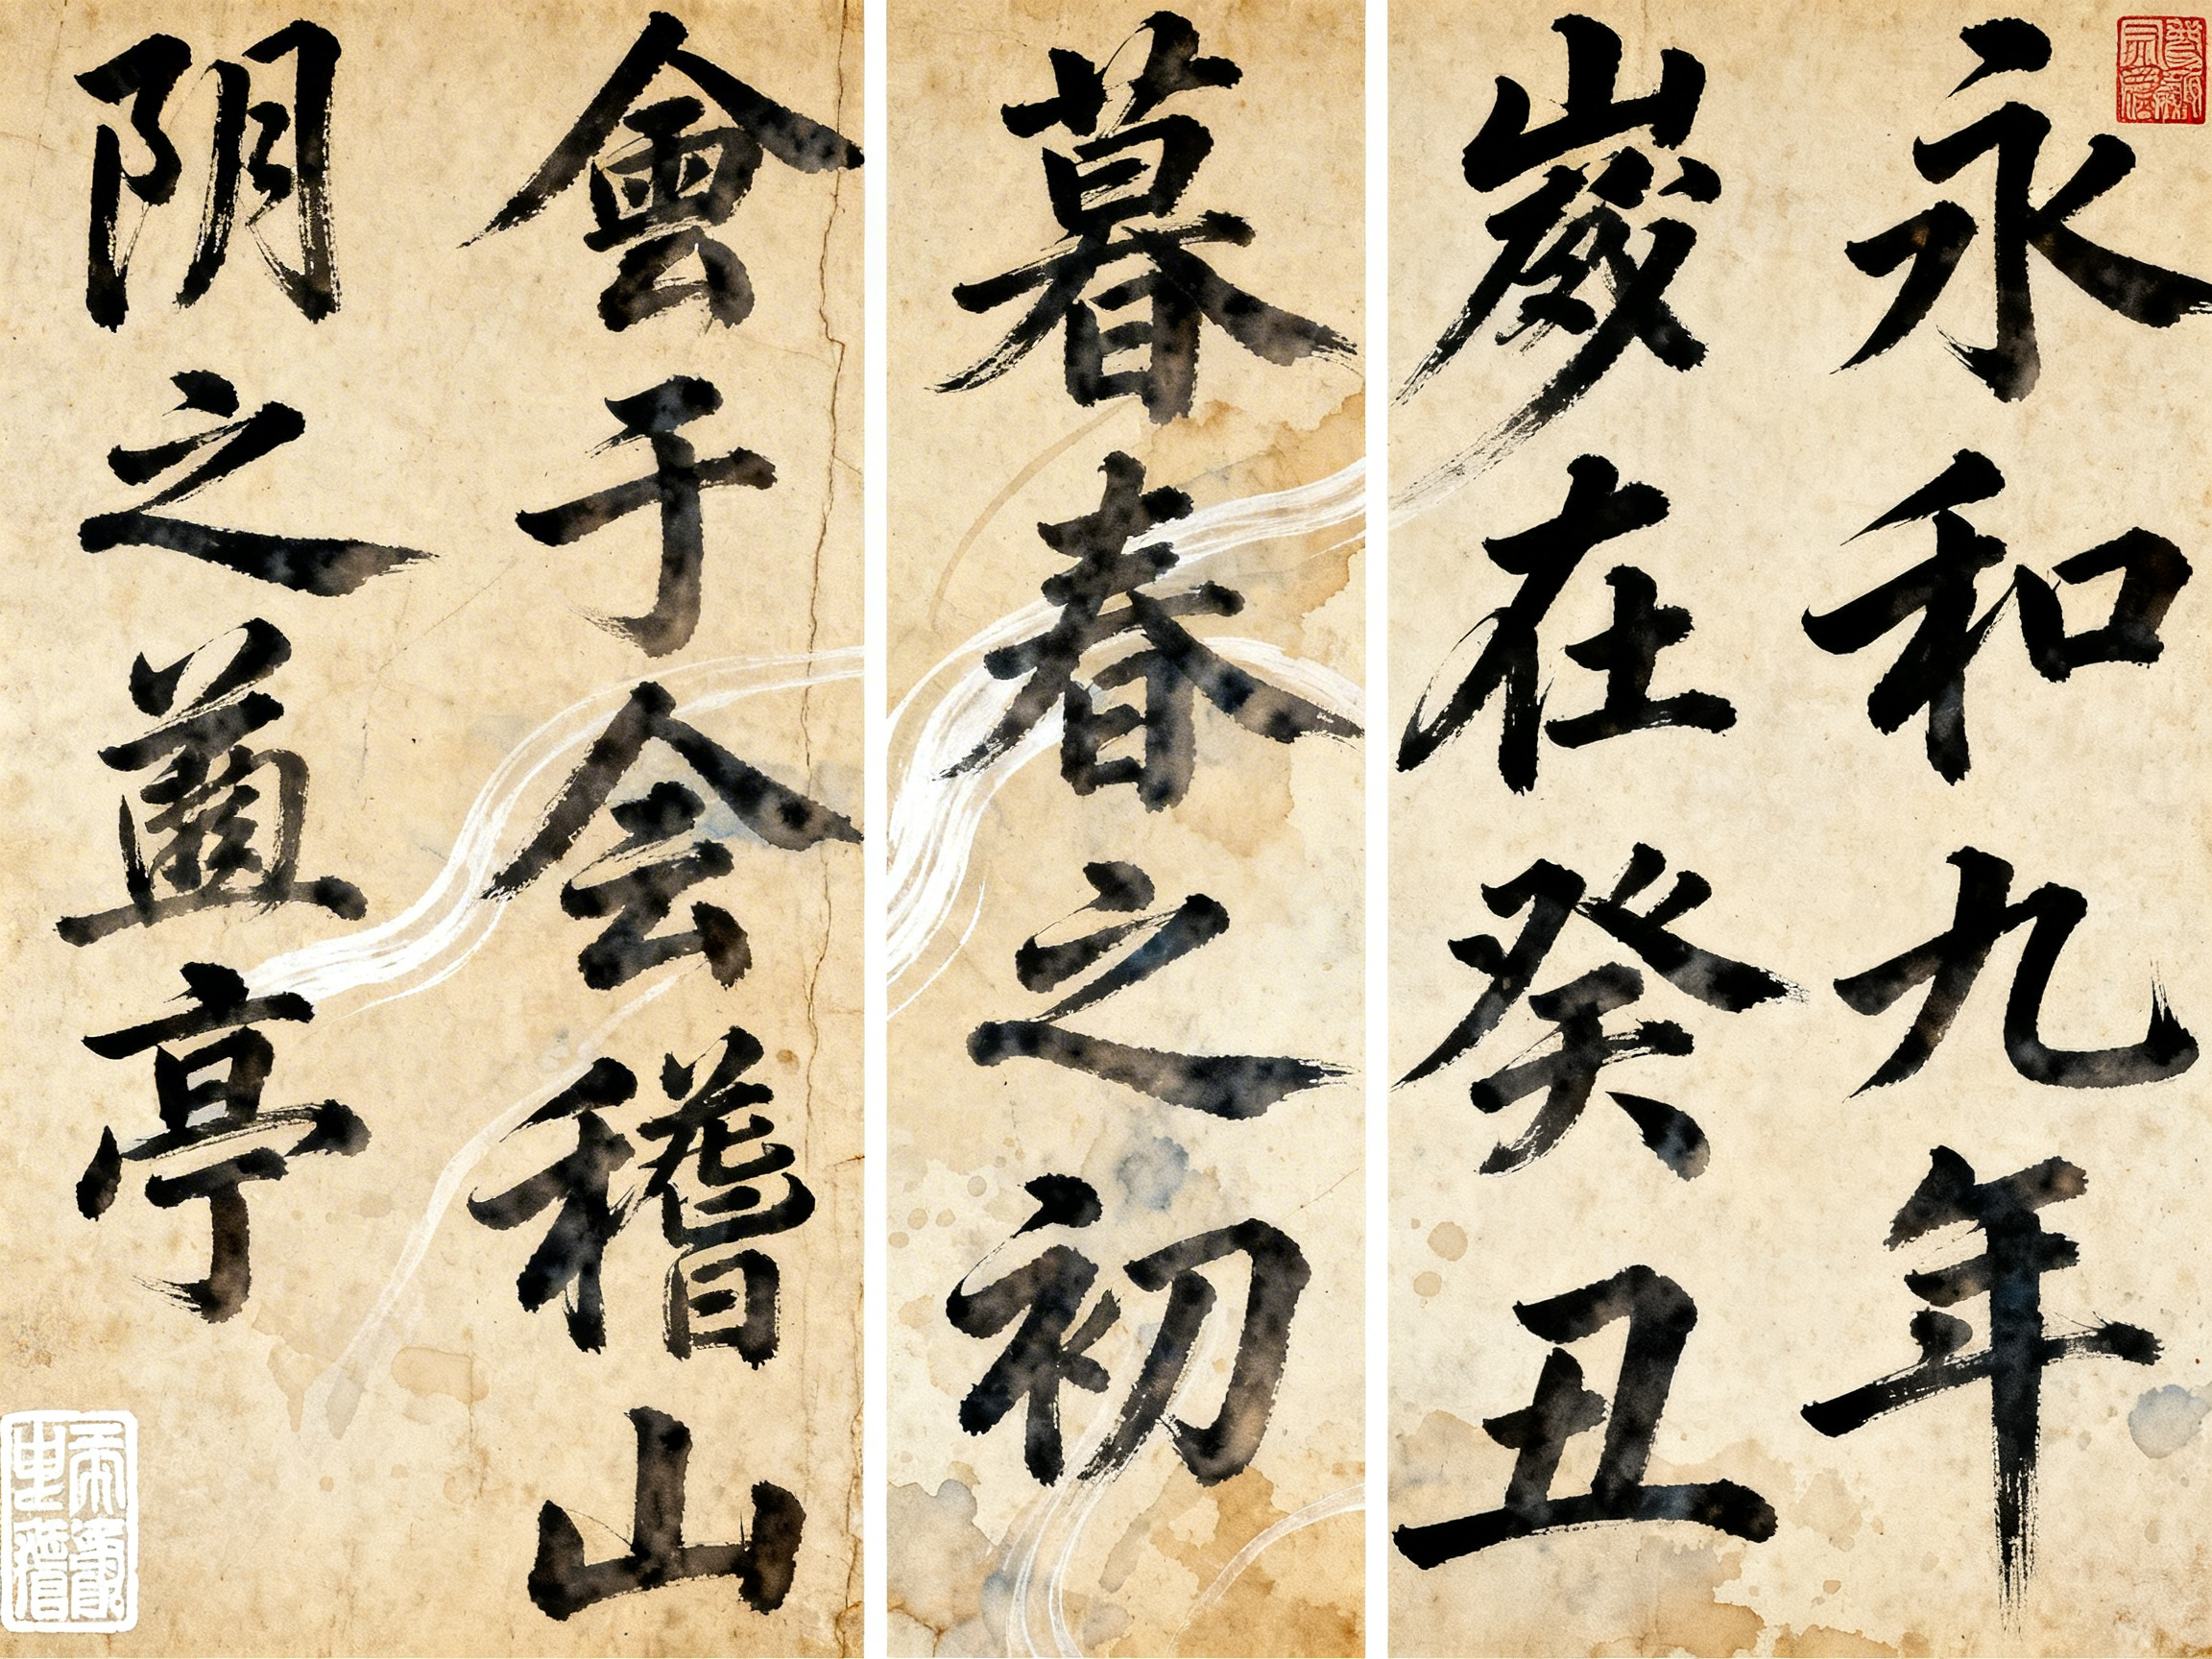 永和九年
嵗在癸丑
暮春之初
會于会稽山
阴之亭